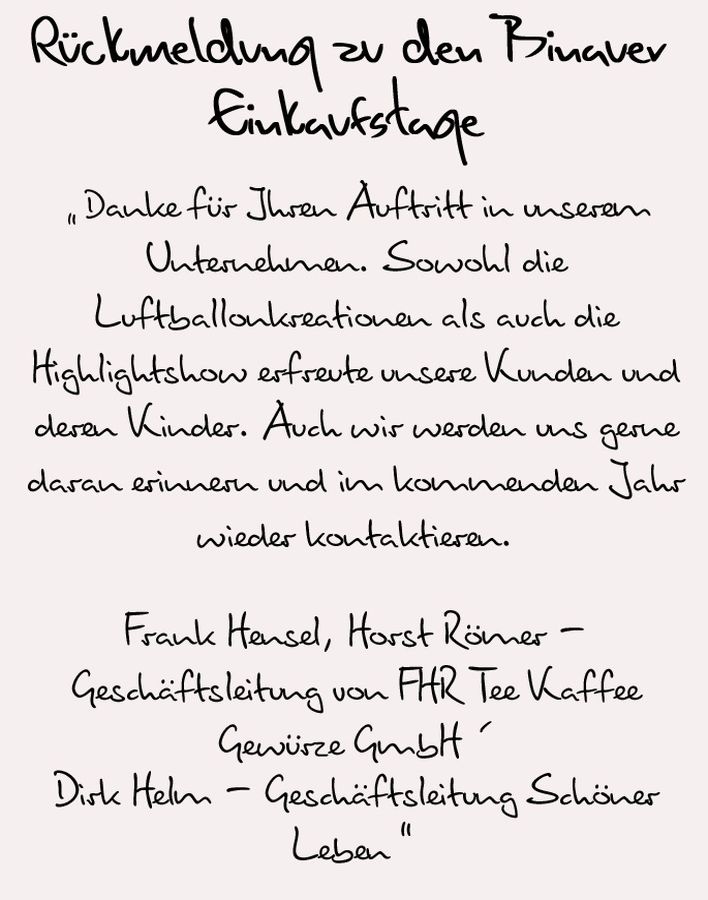 Rückmeldung zu den Binauer
Einkaufstage
„Danke für Ihren Auftritt in unserem
Unternehmen. Sowohl die
Luftballonkreationen als auch die
Highlightshow erfreute unsere Kunden und
deren Kinder. Auch wir werden uns gerne
daran erinnern und im kommenden Jahr
wieder kontaktieren.
Frank Hensel, Horst Römer –
Geschäftsleitung von FHR Tee Kaffee
Gewürze GmbH ´
Dirk Helm – Geschäftsleitung Schöner
Leben“